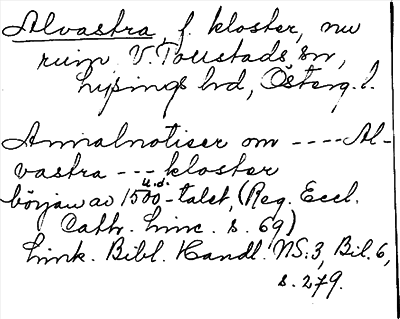 Alvastra, f. kloster, nu
ruin V. Tollstads sn,
Lysings hd, Österg. l.
Annalnotiser om ---- Al-
vastra --- kloster
u.d.
början av 1500-talet, (Reg. Eccl.
Cath. Linc. s. 69)
Link. Bibl. Handl. NS. 3, Bil. 6,
s. 279.